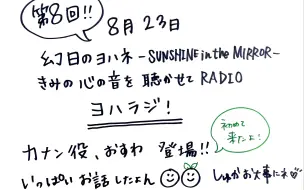 第8回!!
8月23日
幻日のヨハネ -SUNSHINE in the MIRROR-
きみの心の音を聴かせて RADIO
ヨハラジ!
カナン役、おすわ 登場!!
初めて来たよ!
いっぱいお話したよん
しゅかお大事にネ